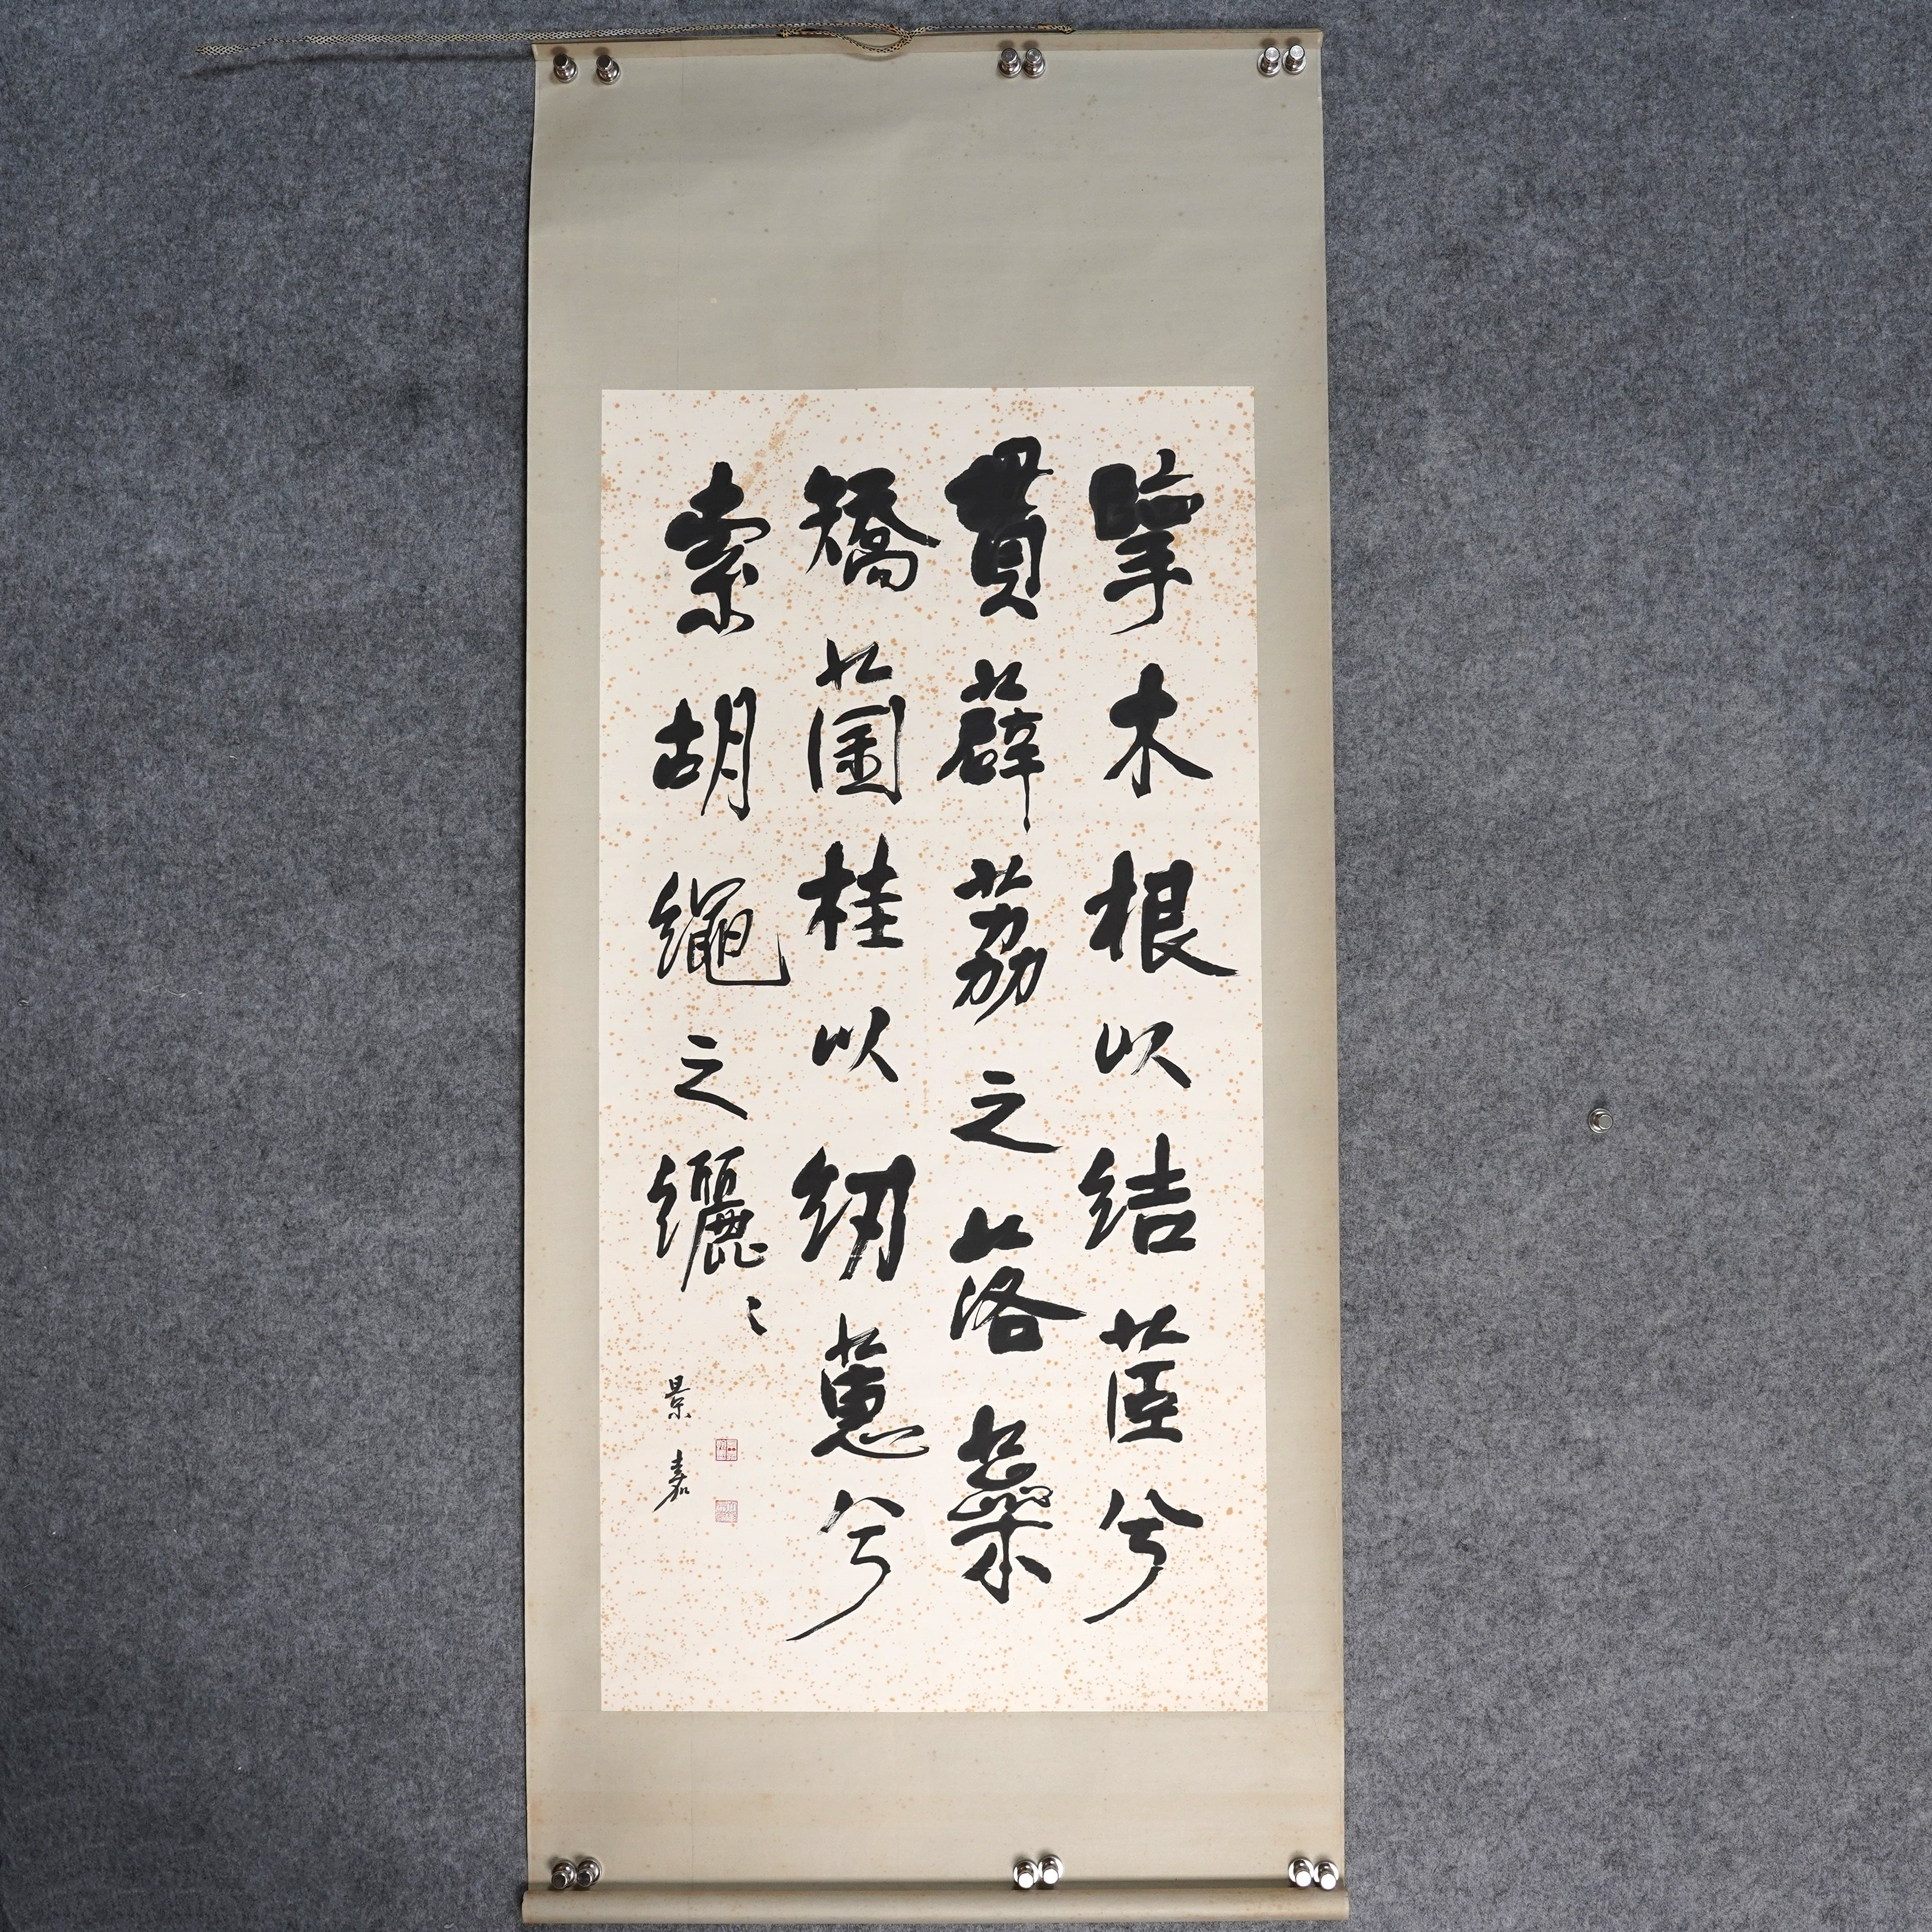 擥木根以結茝兮
貫薜荔之落蘂
矯菌桂以紉蕙兮
索胡繩之纚〻
景嘉